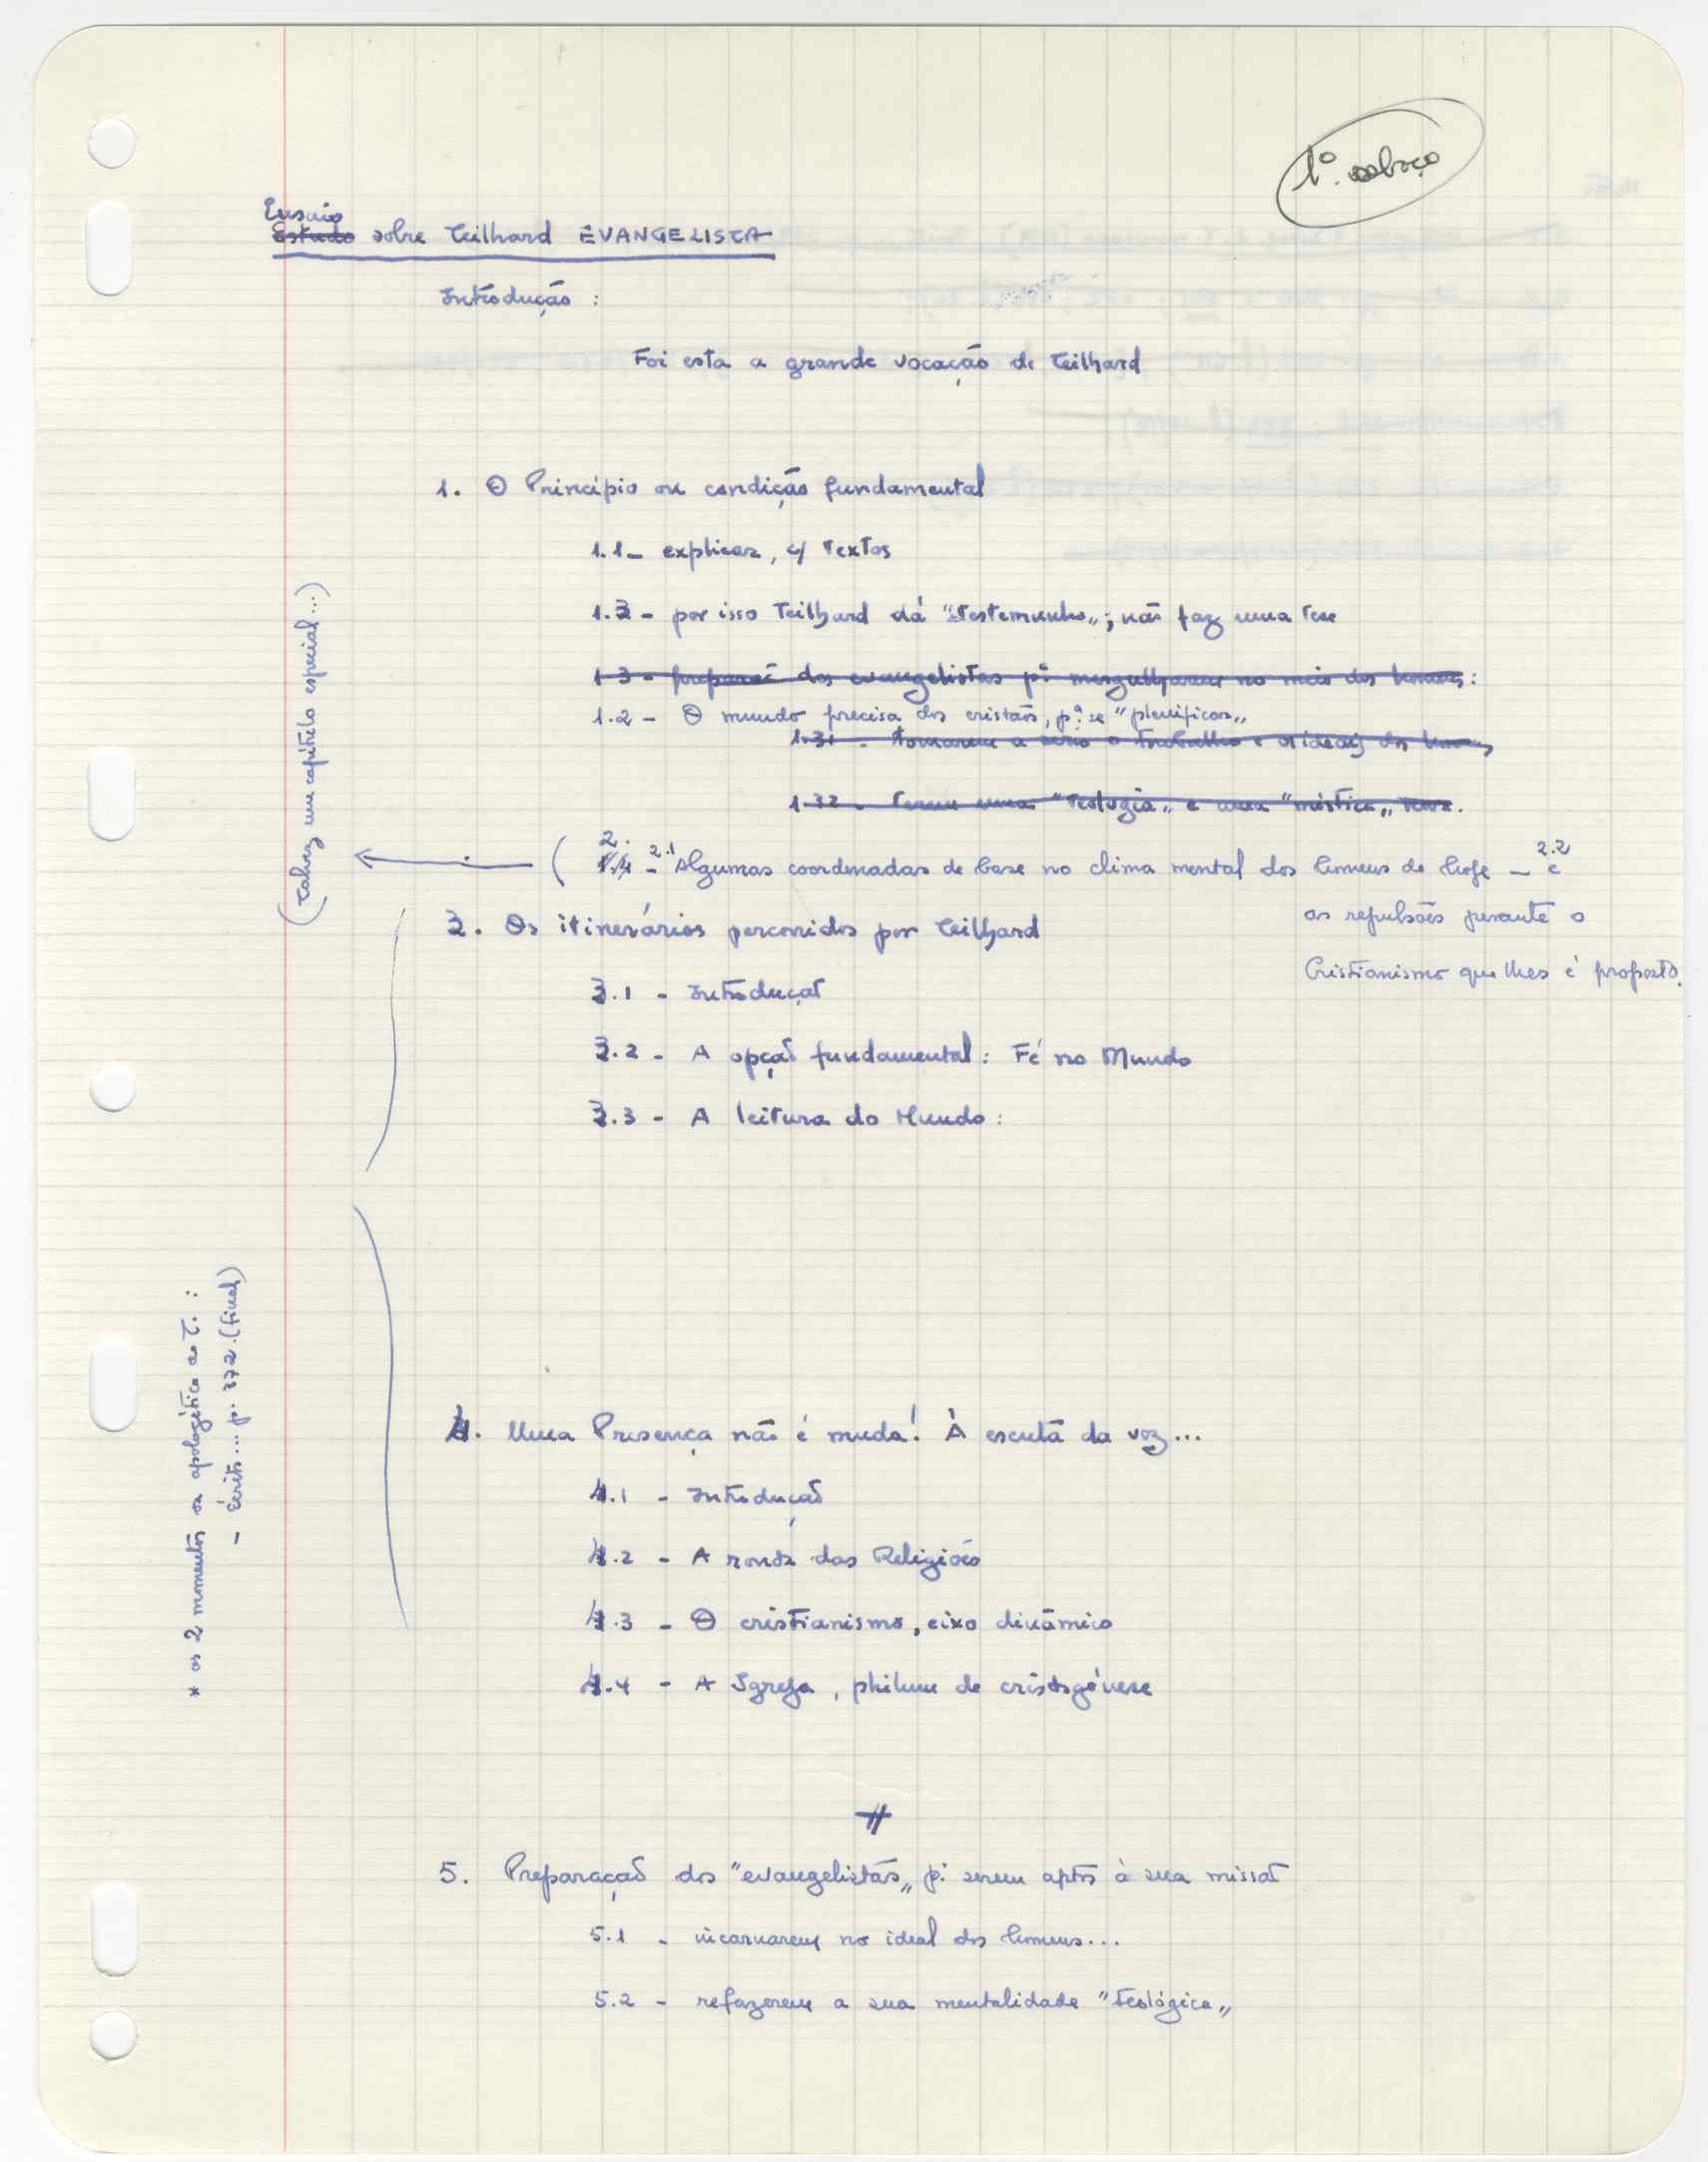 1º. esboço
Ensaio
Estudo sobre Teilhard EVANGELISTA
Introdução :
Foi esta a grande vocação de Teilhard
1. O Princípio ou condição fundamental
1.1 - explicar, c/ textos
1.3 - por isso Teilhard dá "testemunho"; não faz uma tese
1.3 - preparaç. dos evangelistas pª mergulharem no meio dos homens :
1.2 - O mundo precisa dos cristãos, pª se "plenificar"
1.31 - tomarem a sério o trabalho e os ideais dos homens
1.32 - Terem uma "teologia" e uma "mística" nova.
(talvez um capítulo especial...)
2.
( 1.4 - 2.1 Algumas coordenadas de base no clima mental dos homens de hoje - 2.2 e
as repulsões perante o
Cristianismo que lhes é proposto.
3. Os itinerários percorridos por Teilhard
3.1 - Introdução
3.2 - A opção fundamental : Fé no Mundo
3.3 - A leitura do Mundo :
* os 2 momentos da apologética de T. :
- Écrits... p. 372. (final)
4. Uma Presença não é muda! À escuta da voz...
4.1 - Introdução
4.2 - A ronda das Religiões
4.3 - O cristianismo, eixo dinâmico
4.4 - A Igreja, philum de cristogénese
5. Preparação dos "evangelistas" pª serem aptos à sua missão
5.1 - incarnarem no ideal dos homens...
5.2 - refazerem a sua mentalidade "teológica"